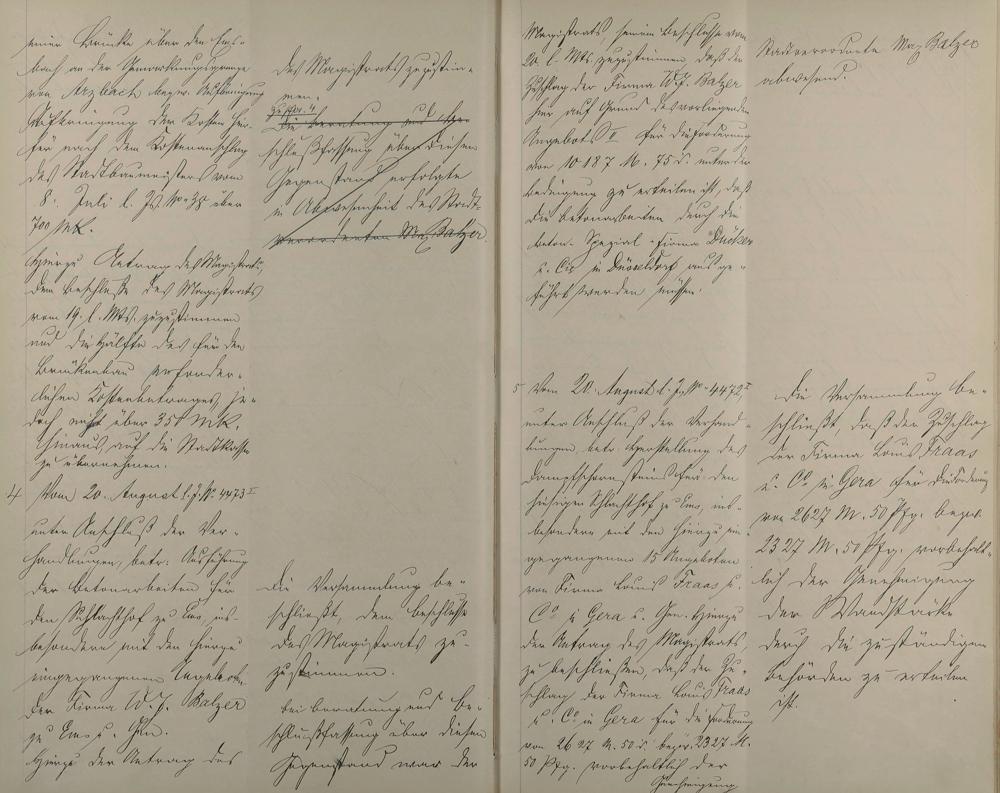 einer Brücke über den Ems-
bach an der Gemarkungsgrenze
von Arzbach bezw. Aufbringung
Aufbringung der Kosten hier-
für nach dem Kostenanschlag
des Stadtbaumeisters vom
8. Juli l. Js. No 38 über
700 Mk.
Hierzu Antrag des Magistrats,
dem Beschlusse des Magistrats
vom 19. l. Mts. zuzustimmen
und die Hälfte des für den
Brückenbau erforder-
lichen Kostenbetrages, je-
doch nicht über 350 Mk.
hinaus, auf die Stadtkasse
zu übernehmen.
4 Vom 20. August l. J. No 4473 I
unter Anschluß der Ver-
handlungen, betr. Ausführung
der Betonarbeiten für
den Schlachthof zu Ems, ins-
besondere mit den hierzu
eingegangenen Angeboten
der Firma W. J. Balzer
zu Ems u. Gen.
Hierzu der Antrag des
des Magistrats zuzustim-
men.
zu Nr. 4
Die Beratung und Be-
schlußfassung über diesen
Gegenstand erfolgte
in Abwesenheit des Stadt-
verordneten Max Balzer.
Die Versammlung be-
schließt, dem Beschlusse
des Magistrats zu-
zustimmen.
Bei Beratung und Be-
schlußfassung über diesen
Gegenstand war der
Magistrats seinem Beschlusse vom
20. l. Mts. zuzustimmen, daß der
Zuschlag der Firma W. J. Balzer
hier auf Grund des vorliegenden
Angebots II für die Forderung
von 10187 M. 75 d. unter der
Bedingung zu erteilen ist, daß
die Betonarbeiten durch die
Beton-Spezial-Firma Dücker
u. Cie in Düsseldorf ausge-
führt werden müssen.
5 Vom 20. August l. J. No 4472 I
unter Anschluß der Verhand-
lungen, betr. Herstellung des
Dampfschornsteins für den
hiesigen Schlachthof zu Ems, ins-
besondere mit den hierzu ein-
gegangenen 15 Angeboten
von Firma Louis Fraas u.
Co in Gera u. Gen. Hierzu
der Antrag des Magistrats,
zu beschließen, daß der Zu-
schlag der Firma Louis Fraas
u. Co in Gera für die Forderung
von 2627 M. 50 d. bezw. 2327 M.
50 Pfg. vorbehaltlich der
Genehmigung
Stadtverordnete Max Balzer
abwesend.
Die Versammlung be-
schließt, daß der Zuschlag
der Firma Louis Fraas
u. Co in Gera für die Forderung
von 2627 M. 50 Pfg. bezw.
2327 M. 50 Pfg. vorbehalt-
lich der Genehmigung
der Wandstärke
durch die zuständigen
Behörden zu erteilen
ist.